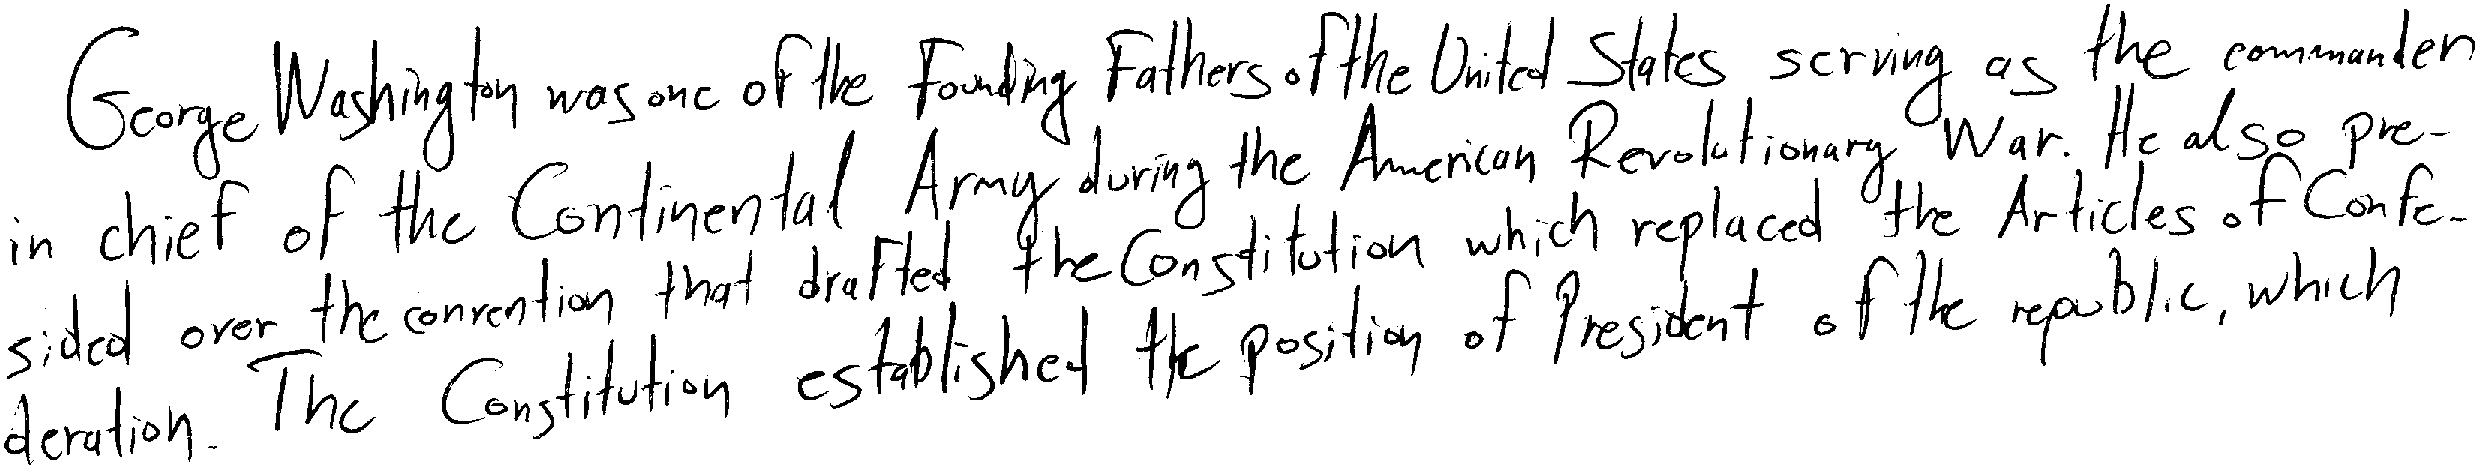 George Washington was one of the Founding Fathers of the United States serving as the commander
in chief of the Continental Army during the American Revolutionary War. He also pre-
sided over the convention that drafted the Constitution which replaced the Articles of Confe-
deration. The Constitution established the position of President of the republic, which